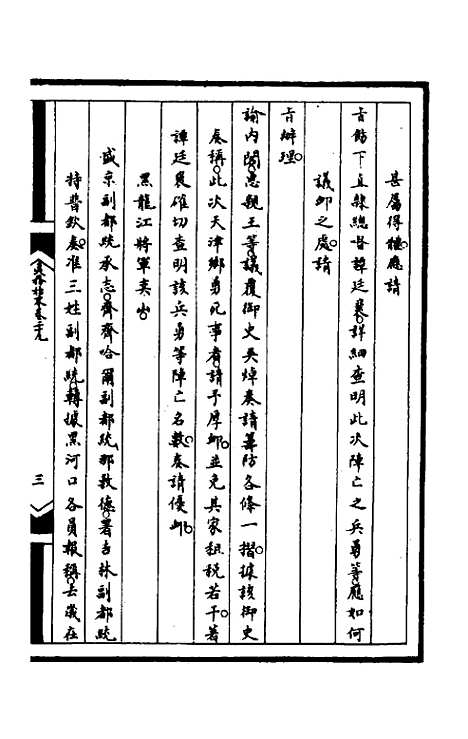 甚屬得體應請
旨飭下直隸總督譚廷襄詳細查明此次陣亡之兵勇等應如何
議卹之處請
旨辦理
諭內閣惠親王等議覆御史吳焯奏請籌防各條一摺據該御史
奏稱此次天津鄉勇死事者請予厚卹並免其家租稅若干著
譚廷襄確切查明該兵勇等陣亡名數奏請優卹
黑龍江將軍奕山
盛京副都統承志齊齊哈爾副都統那敦德署吉林副都統
特普欽奏准三姓副都統轉據黑河口各員報稱去歲在
三